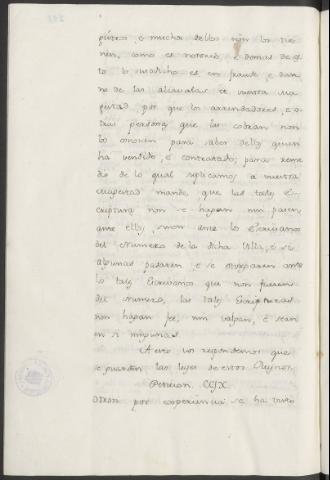 gistros, e mucha dellos non los tie-
nen, como es notorio, e demas de es-
to lo susodicho es en fraude, e dan-
no de las alcavalas de vuestra ma-
gestad, por que los arrendadores, e o-
tras personas que las cobran non
lo conocen para saber dellos quien
ha vendido, e contratado; para reme-
dio de lo qual suplicamos a vuestra
magestad mande, que las tales Es-
cripturas non se hagan nin pasen
ante ellos, sinon ante los Escrivanos
del Numero de la dicha villa, e si
algunas pasaren, e se otorgaren ante
los tales Escrivanos que non fueren
del numero, las tales Escripturas
non hagan fee, nin valgan, e sean
en si ningunas.
A esto vos respondemos que
se guarden las leyes de estos Reynos.
Peticion. CCIX.
Otrosi por experiencia se ha visto